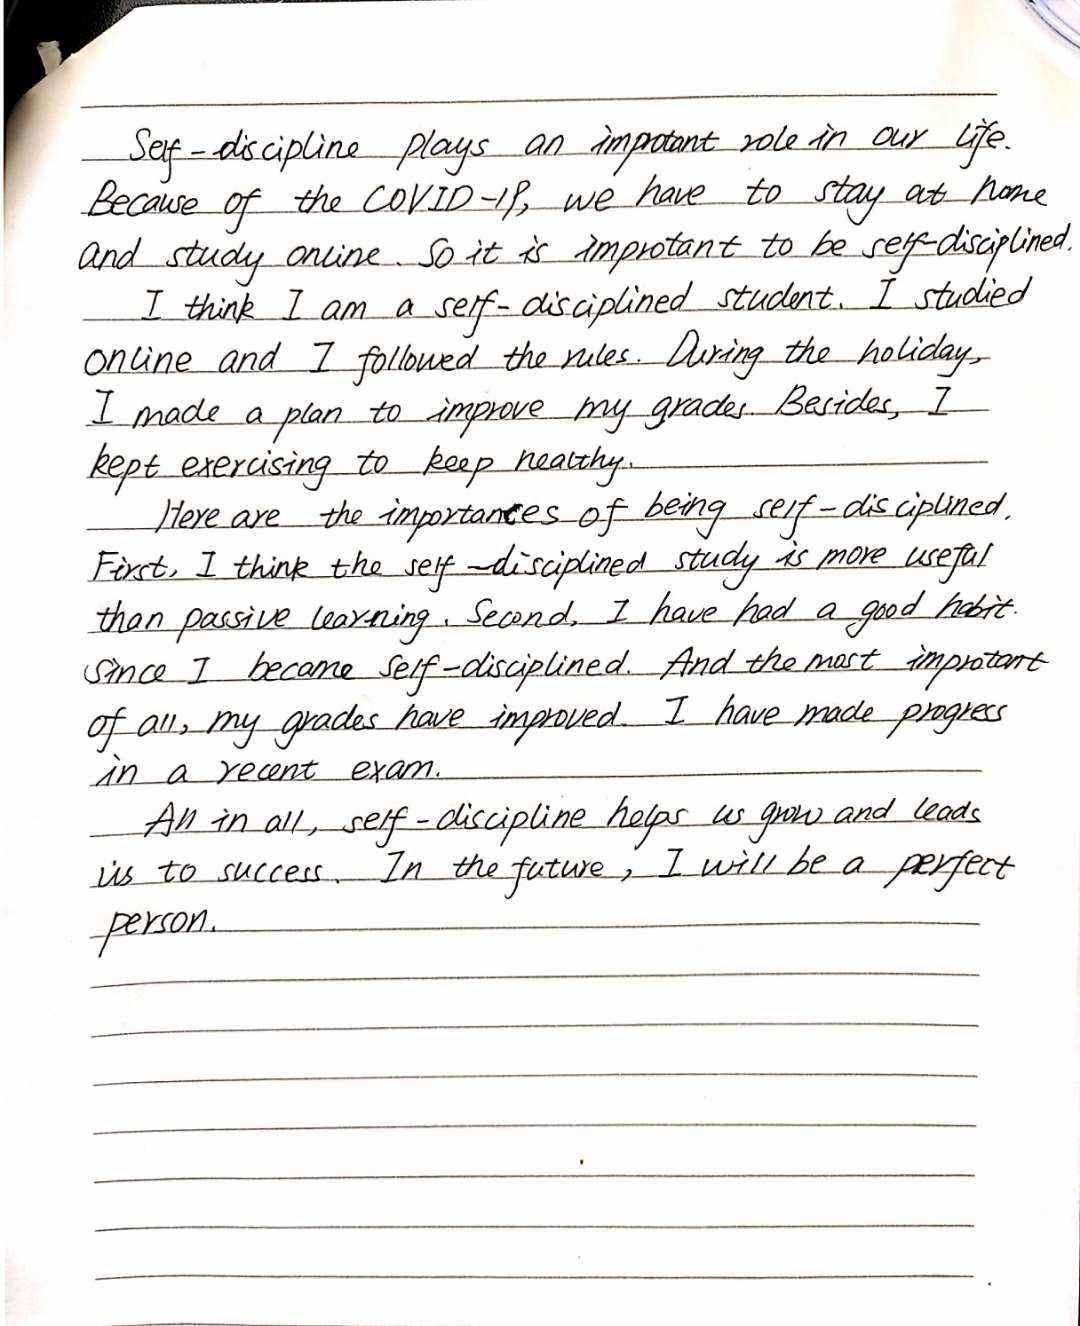 Self-discipline plays an improtant role in our life.
Because of the COVID-19, we have to stay at home
and study online. So it is improtant to be self-disciplined.
I think I am a self-disciplined student. I studied
online and I followed the rules. During the holiday,
I made a plan to improve my grades. Besides, I
kept exercising to keep healthy.
Here are the importances of being self-disciplined.
First, I think the self-disciplined study is more useful
than passive learning. Second, I have had a good habit
since I became self-disciplined. And the most improtant
of all, my grades have improved. I have made progress
in a recent exam.
All in all, self-discipline helps us grow and leads
us to success. In the future, I will be a perfect
person.